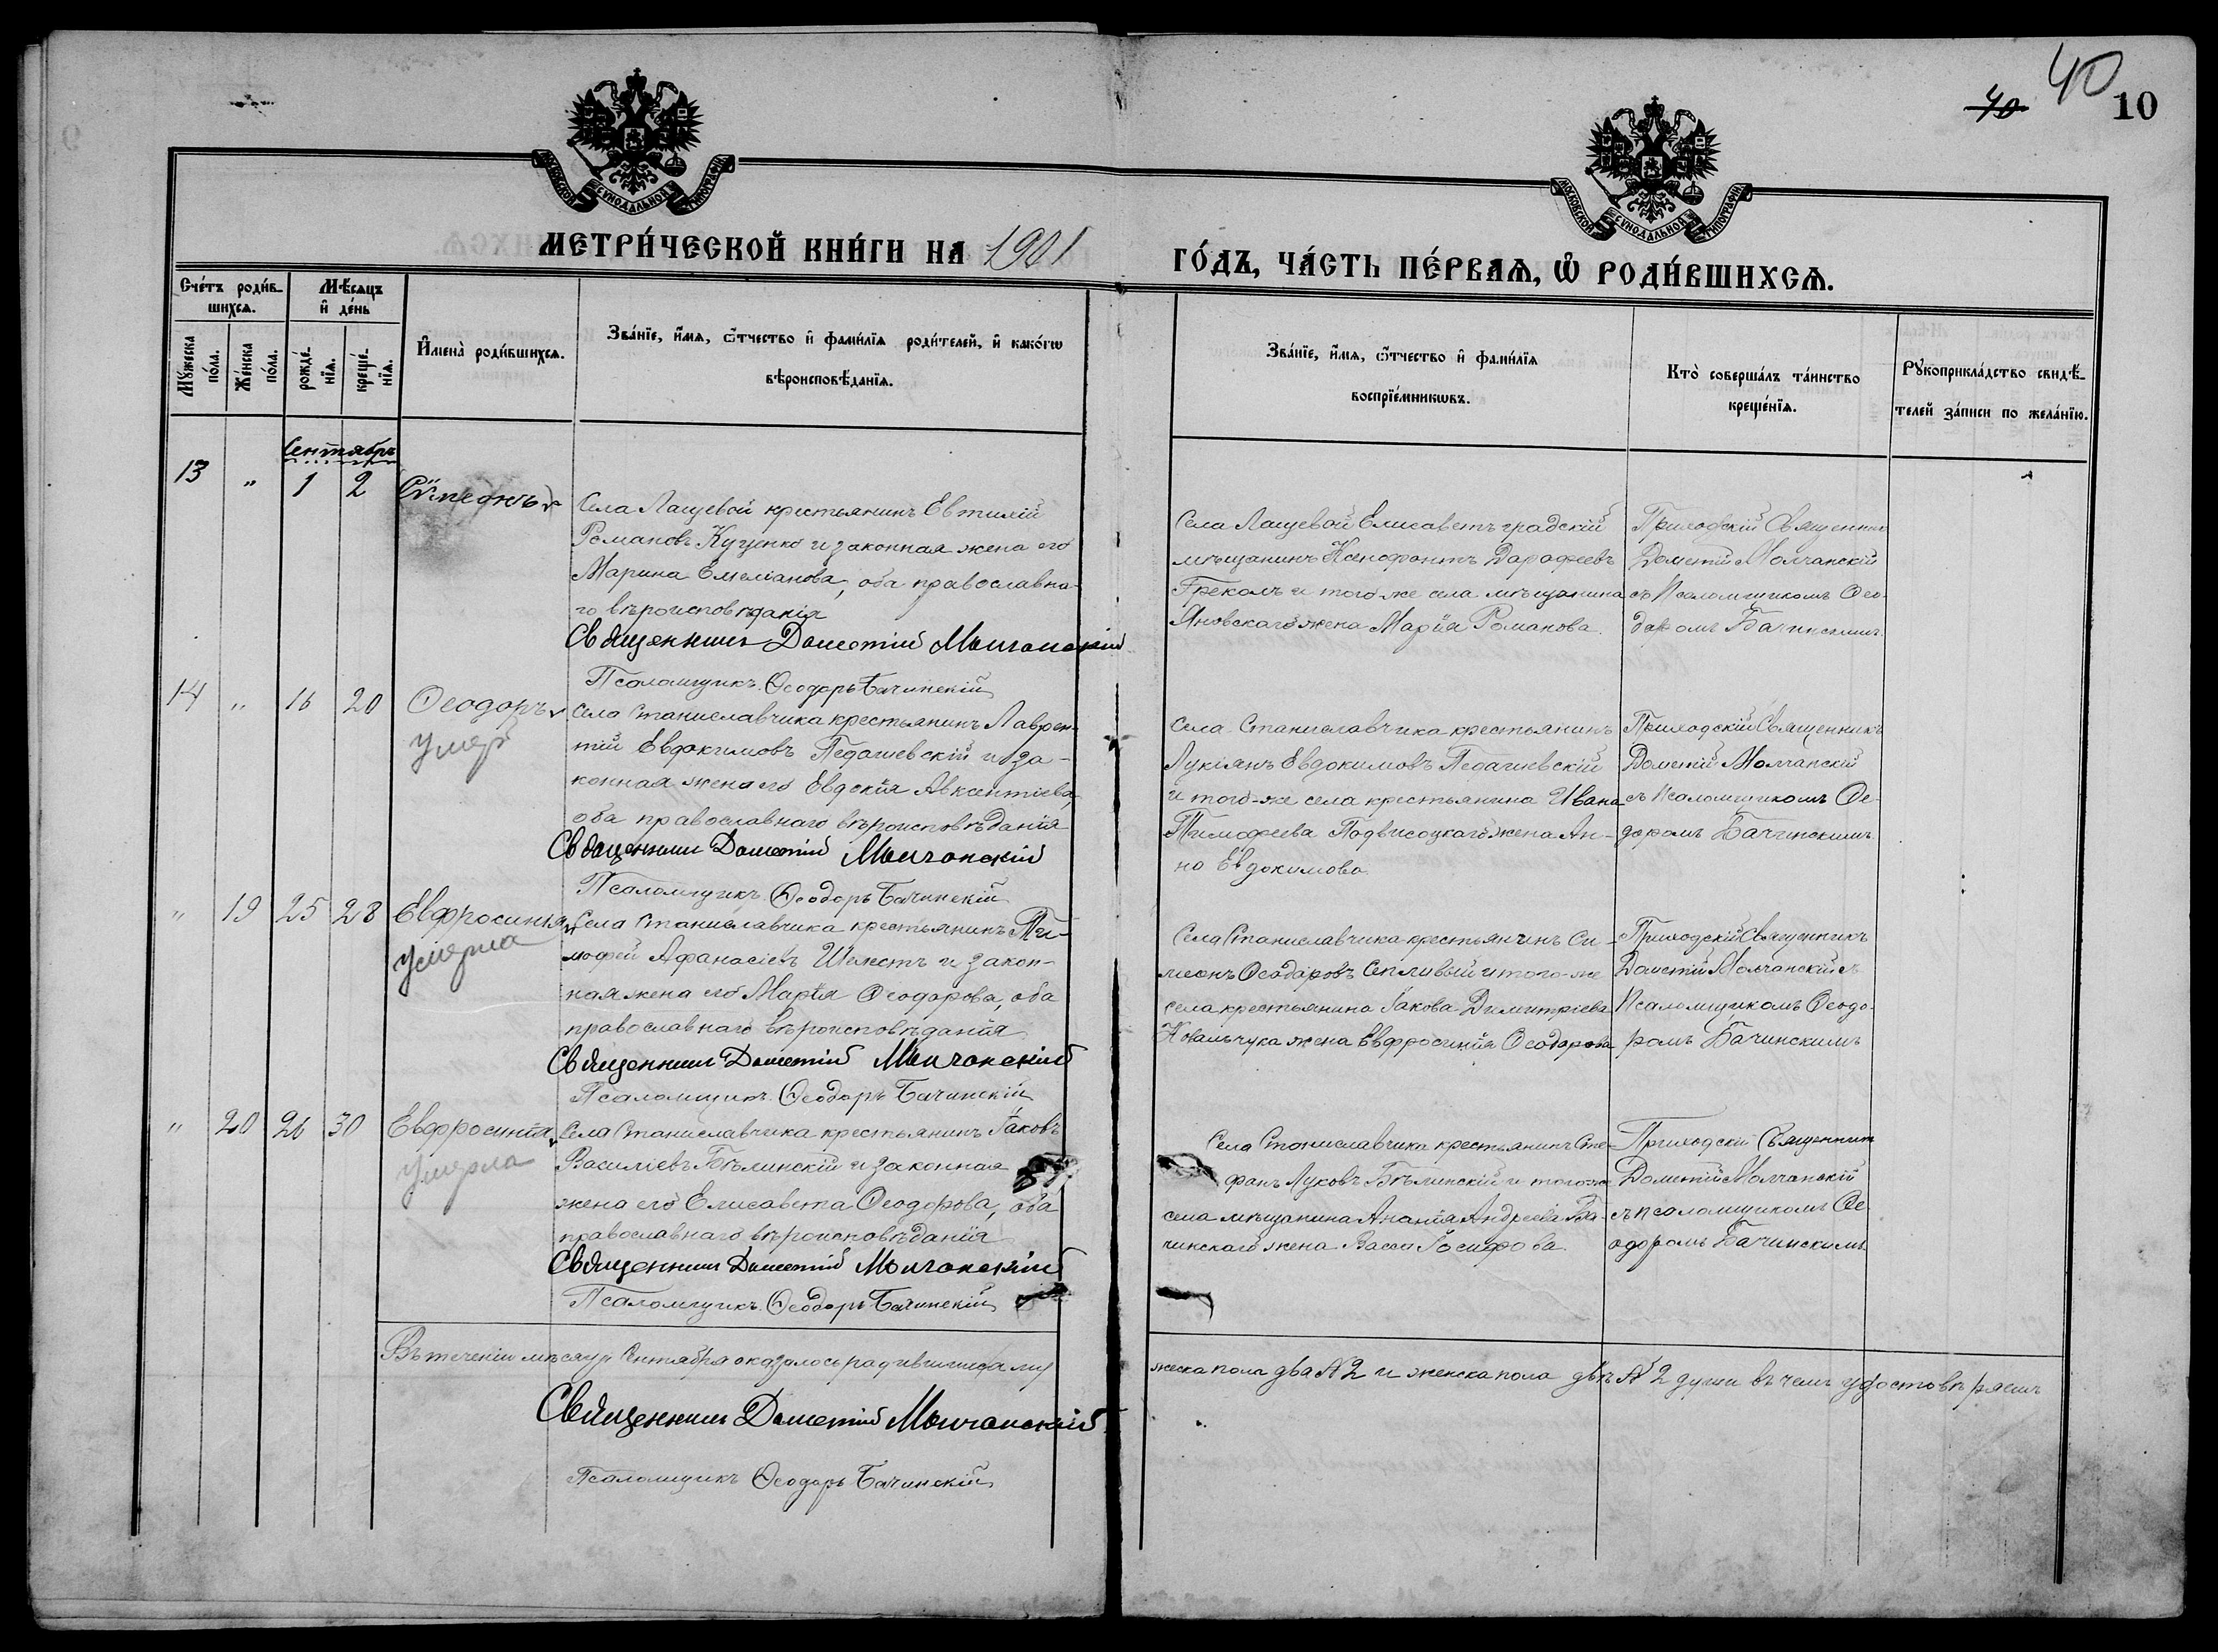 40
40
10
МОСКОВСКОЙ СУНОДАЛЬНОЙ ТИПОГРАФІИ
МОСКОВСКОЙ СУНОДАЛЬНОЙ ТИПОГРАФІИ
МЕТРИ́ЧЕСКОЙ КНИ́ГИ НА 1901
ГО́ДЪ, ЧА́СТЬ ПЕ́РВАѦ, Ѡ РОДИ́ВШИХСѦ.
Сче́тъ роди́в-
шихсѧ.
Мѣсѧцъ
и҆ де́нь
Мꙋ́жеска
по́ла.
Же́нска
по́ла.
рожде́-
нїѧ.
креще́-
нїѧ.
И҆мена̀ роди́вшихсѧ.
Зва́нїе, и҆́мѧ, ѻ҆́тчество и҆ фами́лїѧ роди́телей, и҆ како́гѡ
вѣроисповѣ́данїѧ.
Зва́нїе, и҆́мѧ, ѻ҆́тчество и҆ фами́лїѧ
воспрїе́мникѡвъ.
Кто̀ соверша́лъ та́инство
креще́нїѧ.
Рꙋкоприкла́дство свидѣ́-
телей за́писи по жела́нїю.
Сентябрь
13 " 1 2 Сѵмеонъ
Села Лащевой крестьянинъ Евтихій
Романовъ Куценко и законная жена его
Марина Емеліанова, оба православна-
го вѣроисповѣданія
Священникъ Дометій Молчанскій
Псаломщикъ Ѳеодоръ Бачинскій
Села Лащевой Елисаветъградскій
мѣщанинъ Ксенофонтъ Дарофеевъ
Грекомъ и того-же села мѣщанина
Яновскаго жена Марія Романова.
Приходскій Священникъ
Дометій Молчанскій
съ Псаломщикомъ Ѳео-
даромъ Бачинскимъ
14 " 16 20 Ѳеодоръ
умеръ
Села Станиславчика крестьянинъ Лаврен-
тій Евдокимовъ Педашевскій и за-
конная жена его Евдокія Авксентіева,
оба православнаго вѣроисповѣданія
Священникъ Дометій Молчанскій
Псаломщикъ Ѳеодоръ Бачинскій
Села Станиславчика крестьянинъ
Лукіянъ Евдокимовъ Педашевскій
и того-же села крестьянина Ивана
Тимофеева Подвисоцкаго жена Ан-
на Евдокимова
Приходскій Священникъ
Дометій Молчанскій
съ Псаломщикомъ Ѳе-
доромъ Бачинскимъ
" 19 25 28 Евфросинія
умерла
Села Станиславчика крестьянинъ Ти-
мофей Афанасіевъ Шелестъ и закон-
ная жена его Марія Ѳеодорова, оба
православнаго вѣроисповѣданія
Священникъ Дометій Молчанскій
Псаломщикъ Ѳеодоръ Бачинскій
Села Станиславчика крестьянинъ Си-
меонъ Ѳеодоровъ Сепливый и того-же
села крестьянина Іакова Димитріева
Ковальчука жена Евфросинія Ѳеодорова
Приходскій Священникъ
Дометій Молчанскій съ
Псаломщикомъ Ѳеодо-
ромъ Бачинскимъ
" 20 26 30 Евфросинія
умерла
Села Станиславчика крестьянинъ Іаковъ
Василіевъ Бѣлинскій и законная
жена его Елисавета Ѳеодорова, оба
православнаго вѣроисповѣданія
Священникъ Дометій Молчанскій
Псаломщикъ Ѳеодоръ Бачинскій
Села Станиславчика крестьянинъ Сте-
фанъ Луковъ Бѣлинскій и того-же
села мѣщанина Ананія Андреева Ба-
чинскаго жена Васса Іосифова
Приходскій Священникъ
Дометій Молчанскій
съ псаломщикомъ Ѳе-
одоромъ Бачинскимъ
Въ теченіи мѣсяца Сентября оказалось родившимися му-
жеска пола два № 2 и женска пола двѣ № 2 души въ чемъ удостовѣряемъ
Священникъ Дометій Молчанскій
Псаломщикъ Ѳеодоръ Бачинскій